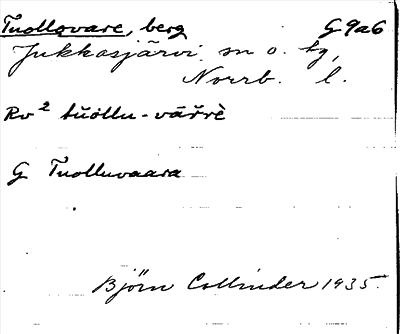 Tuollovare, berg G 9a6
Jukkasjärvi sn o. hg,
Norrb. l.
Rv² tŭollu-vāřrè
G Tuolluvaara
Björn Collinder 1935.